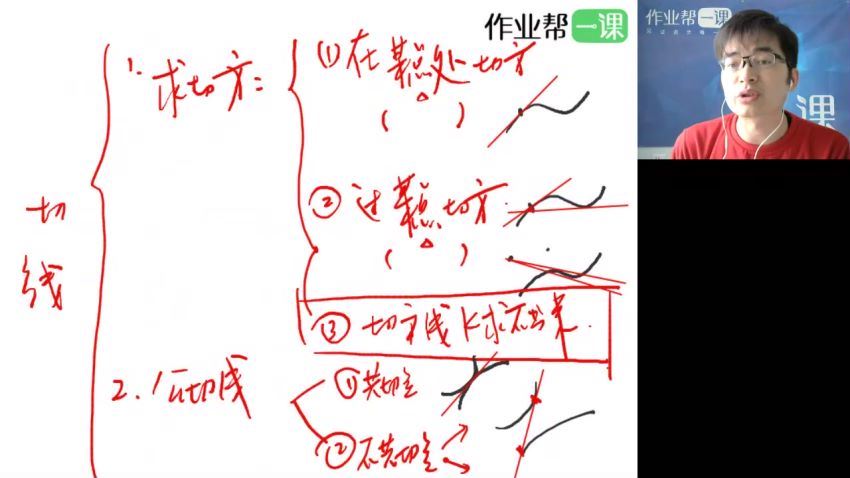 作业帮一课
作业帮一课
课
切线
1. 求切方:
(1) 在某点处切方
( )
② 过某点切方.
( )
③ 切线 k求不出来.
2. 公切线
① 共切点
② 不共切点